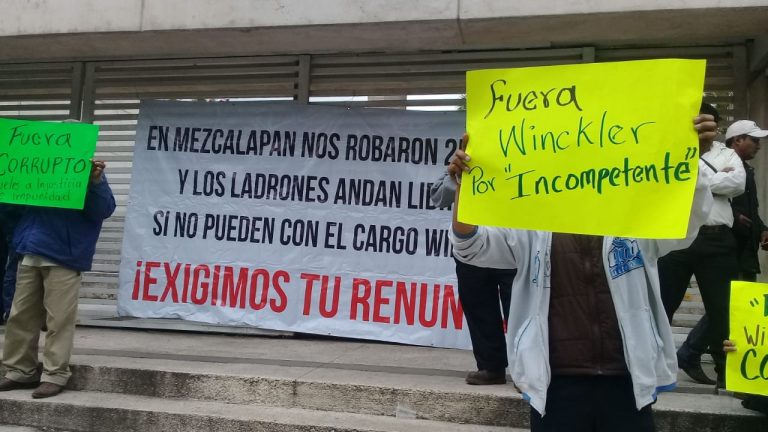 Fuera
CORRUPTO
a Injusticia
impunidad
EN MEZCALAPAN NOS ROBARON
Y LOS LADRONES ANDAN
SI NO PUEDEN CON EL CARGO
¡EXIGIMOS TU
Fuera
Winckler
Por "Incompetente"